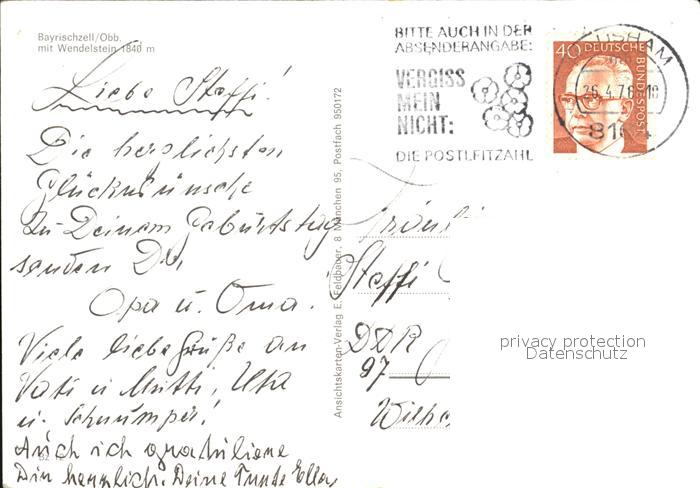 Bayrischzell/Obb.
mit Wendelstein 1840 m
Liebe Steffi!
Die herzlichsten
Glückwünsche
zu Deinem Geburtstag
senden Dir
Opa u. Oma.
Viele liebe Grüße an
Vati u. Mutti, Uta
u. Schnumpei!
Auch ich gratuliere
Dir herzlich. Deine Tante Ellen
Ansichtskarten-Verlag E. Feldbauer, 8 München 95, Postfach 950172
BITTE AUCH IN DER
ABSENDERANGABE:
VERGISS
MEIN
NICHT:
DIE POSTLEITZAHL
40 DEUTSCHE
BUNDESPOST
26.4.76
Steffi
DDR
97
privacy protection
Datenschutz